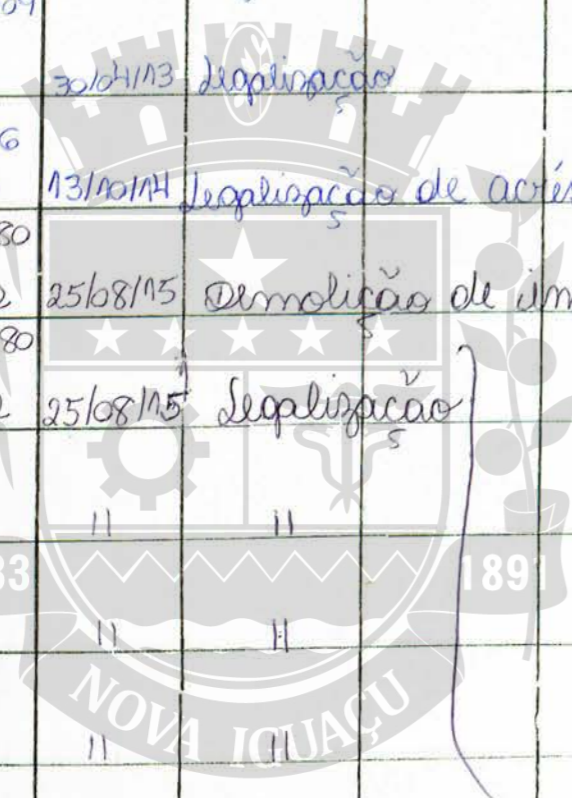 09
30/04/13 Legalização
6
13/10/14 Legalização de acrés
80
2 25/08/15 Demolição de im
80
2 25/08/15 Legalização
" "
33 1891
" "
NOVA IGUAÇU
" "